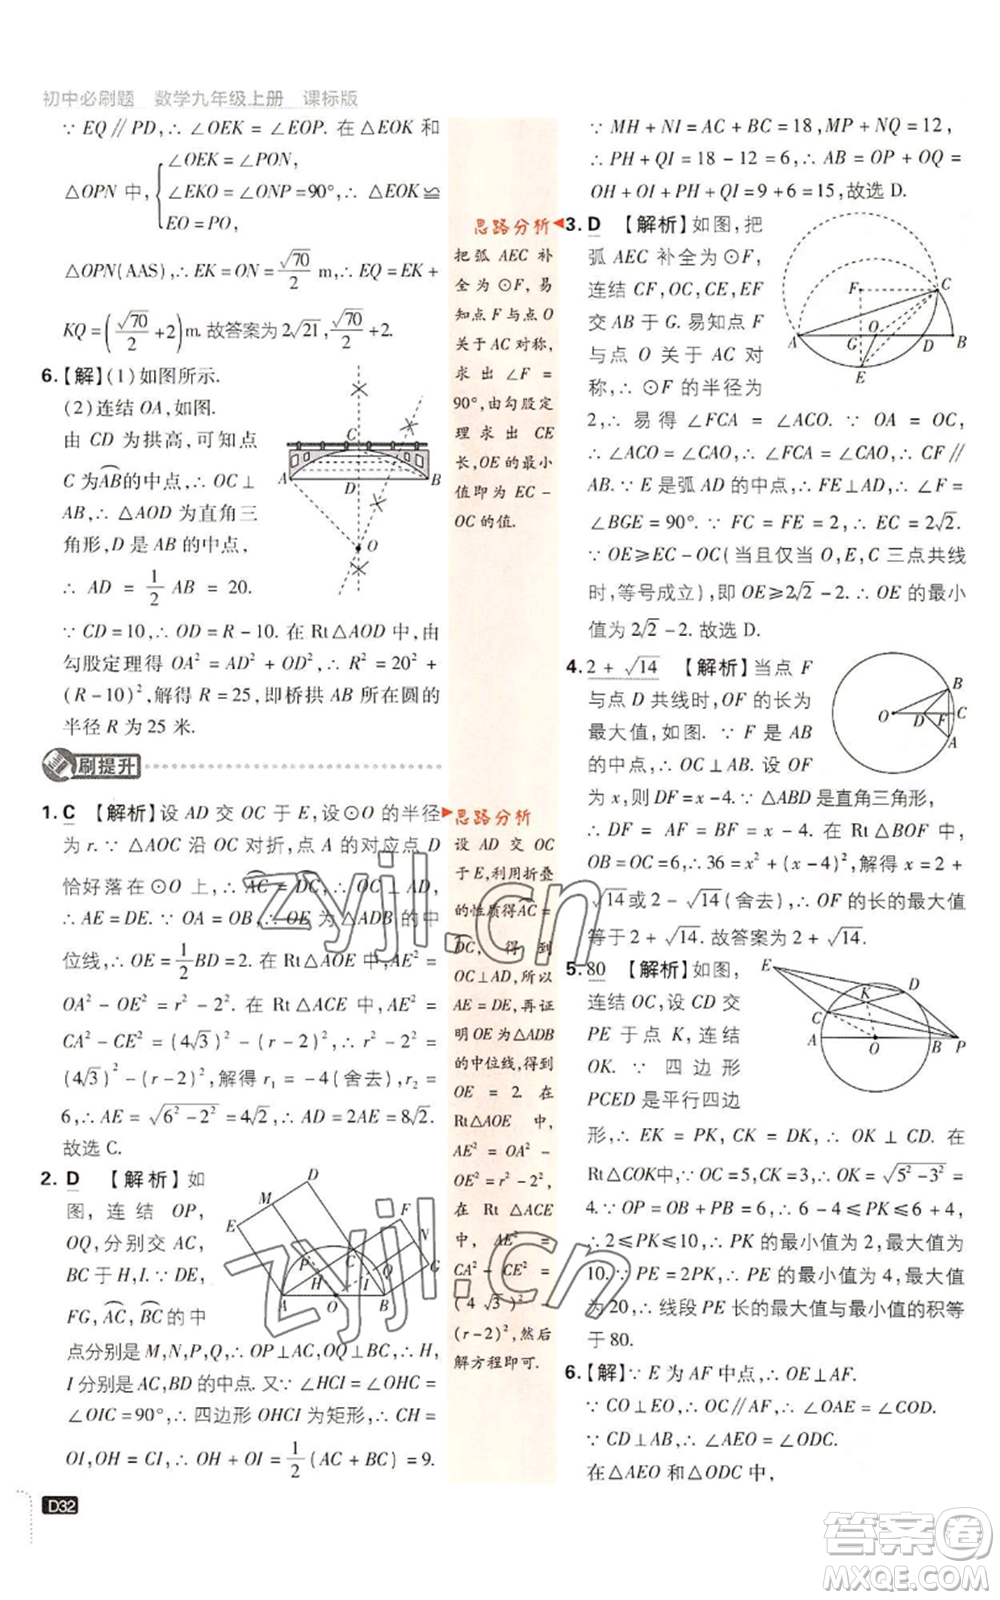 初中必刷题 数学九年级上册 课标版
∵ EQ∥PD,∴ ∠OEK = ∠EOP. 在△EOK 和
△OPN 中, { ∠OEK = ∠PON, ∠EKO = ∠ONP = 90°, EO = PO, ∴ △EOK≌
△OPN(AAS),∴ EK = ON = √70/2 m,∴ EQ = EK +
KQ = (√70/2 + 2) m. 故答案为 2√21, √70/2 + 2.
6. 【解】(1)如图所示.
(2)连结 OA,如图.
由 CD 为拱高,可知点
C 为⌒AB的中点,∴ OC⊥
AB,∴ △AOD 为直角三
角形,D 是 AB 的中点,
∴ AD = 1/2 AB = 20.
∵ CD = 10,∴ OD = R - 10. 在 Rt△AOD 中,由
勾股定理得 OA² = AD² + OD²,∴ R² = 20² +
(R - 10)²,解得 R = 25,即桥拱 AB 所在圆的
半径 R 为 25 米.
C
A D B
O
刷提升
1. C 【解析】设 AD 交 OC 于 E,设⊙O 的半径
为 r. ∵ △AOC 沿 OC 对折,点 A 的对应点 D
恰好落在⊙O 上,∴ ⌒AC = ⌒DC,∴ OC⊥AD,
∴ AE = DE. ∵ OA = OB,∴ OE 为△ADB 的中
位线,∴ OE = 1/2 BD = 2. 在 Rt△AOE 中,AE² =
OA² - OE² = r² - 2². 在 Rt△ACE 中,AE² =
CA² - CE² = (4√3)² - (r - 2)²,∴ r² - 2² =
(4√3)² - (r - 2)²,解得 r₁ = -4(舍去),r₂ =
6,∴ AE = √(6² - 2²) = 4√2,∴ AD = 2AE = 8√2.
故选 C.
2. D 【解析】如
图,连结 OP,
OQ,分别交 AC,
BC 于 H,I. ∵ DE,
FG,⌒AC,⌒BC 的中
点分别是 M,N,P,Q,∴ OP⊥AC,OQ⊥BC,∴ H,
I 是 AC,BD 的中点. ∴ ∠OHC = ∠HCI =
∠OIC = 90°,∴ 四边形 OHCI 为矩形,∴ CH =
OI,OH = CI,∴ OH + OI = 1/2 (AC + BC) = 9.
D M F N E P C Q G H I A O B
D32
思路分析
把弧 AEC 补
全为⊙F,易
知点 F 与点 O
关于 AC 对称,
求出∠F =
90°,由勾股定
理求出 CE
长,OE 的最小
值即为 EC -
OC 的值.
思路分析
设 AD 交 OC
于 E,利用折叠
的性质得AC =
DC, 得到
OC⊥AD,所以
AE = DE,再证
明 OE 为△ADB
的中位线,得到
OE = 2. 在
Rt△AOE 中,
AE² = OA² -
OE² = r² - 2².
在 Rt△ACE
中,AE² =
CA² - CE² =
(4√3)² -
(r - 2)²,然后
解方程即可.
∵ MH + NI = AC + BC = 18,MP + NQ = 12,
∴ PH + QI = 18 - 12 = 6,∴ AB = OP + OQ =
OH + OI + PH + QI = 9 + 6 = 15,故选 D.
3. D 【解析】如图,把
弧 AEC 补全为⊙F,
连结 CF,OC,OE,EC
交 AB 于 G. 易知点 F
与点 O 关于 AC 对
称,∴ ⊙F 的半径为
2,∴ 易得∠FCA = ∠ACO. ∵ OA = OC,
∴ ∠ACO = ∠CAO,∴ ∠FCA = ∠CAO,∴ CF∥
AB. ∵ E 是弧 AD 的中点,∴ FE⊥AD,∴ ∠F =
∠BGE = 90°. ∵ FC = FE = 2,∴ EC = 2√2.
∵ OE≥EC - OC(当且仅当 O,E,C 三点共线
时,等号成立),∴ OE≥2√2 - 2. ∴ OE 的最小
值为 2√2 - 2. 故选 D.
F C O A G D B E
4. 2 + √14 【解析】当点 F
与点 D 共线时,OF 的长为
最大值,如图. ∵ F 是 AB
的中点,∴ OC⊥AB. 设 OF
为 x,则 DF = x - 4. ∵ △ABD 是直角三角形,
∴ DF = AF = BF = x - 4. 在 Rt△BOF 中,
OB = OC = 6,∴ 36 = x² + (x - 4)²,解得 x = 2 +
√14或 2 - √14(舍去),∴ OF 的长的最大值
等于 2 + √14. 故答案为 2 + √14.
B O D F C A
5. 80 【解析】如图,
连结 OC,设 CD 交
PE 于点 K,连结
OK. ∵ 四边形
PCED 是平行四边
形,∴ EK = PK,CK = DK,∴ OK⊥CD. 在
Rt△COK中,∵ OC = 5,CK = 3,∴ OK = √(5² - 3²) =
4. ∵ OP = OB + PB = 6,∴ 6 - 4≤PK≤6 + 4,
∴ 2≤PK≤10,∴ PK 的最小值为 2,最大值为
10. ∵ PE = 2PK,∴ PE 的最小值为 4,最大值
为 20,∴ 线段 PE 长的最大值与最小值的积等
于 80.
E D K C A O B P
6. 【解】∵ E 为 AF 中点,∴ OE⊥AF.
∵ CO⊥EO,∴ OC∥AF,∴ ∠A = ∠COD.
∵ CD⊥AB,∴ ∠AEO = ∠ODC.
在△AEO 和△ODC 中,
zyjl.cn
zyjl.cn
答案圈
MXQE.COM